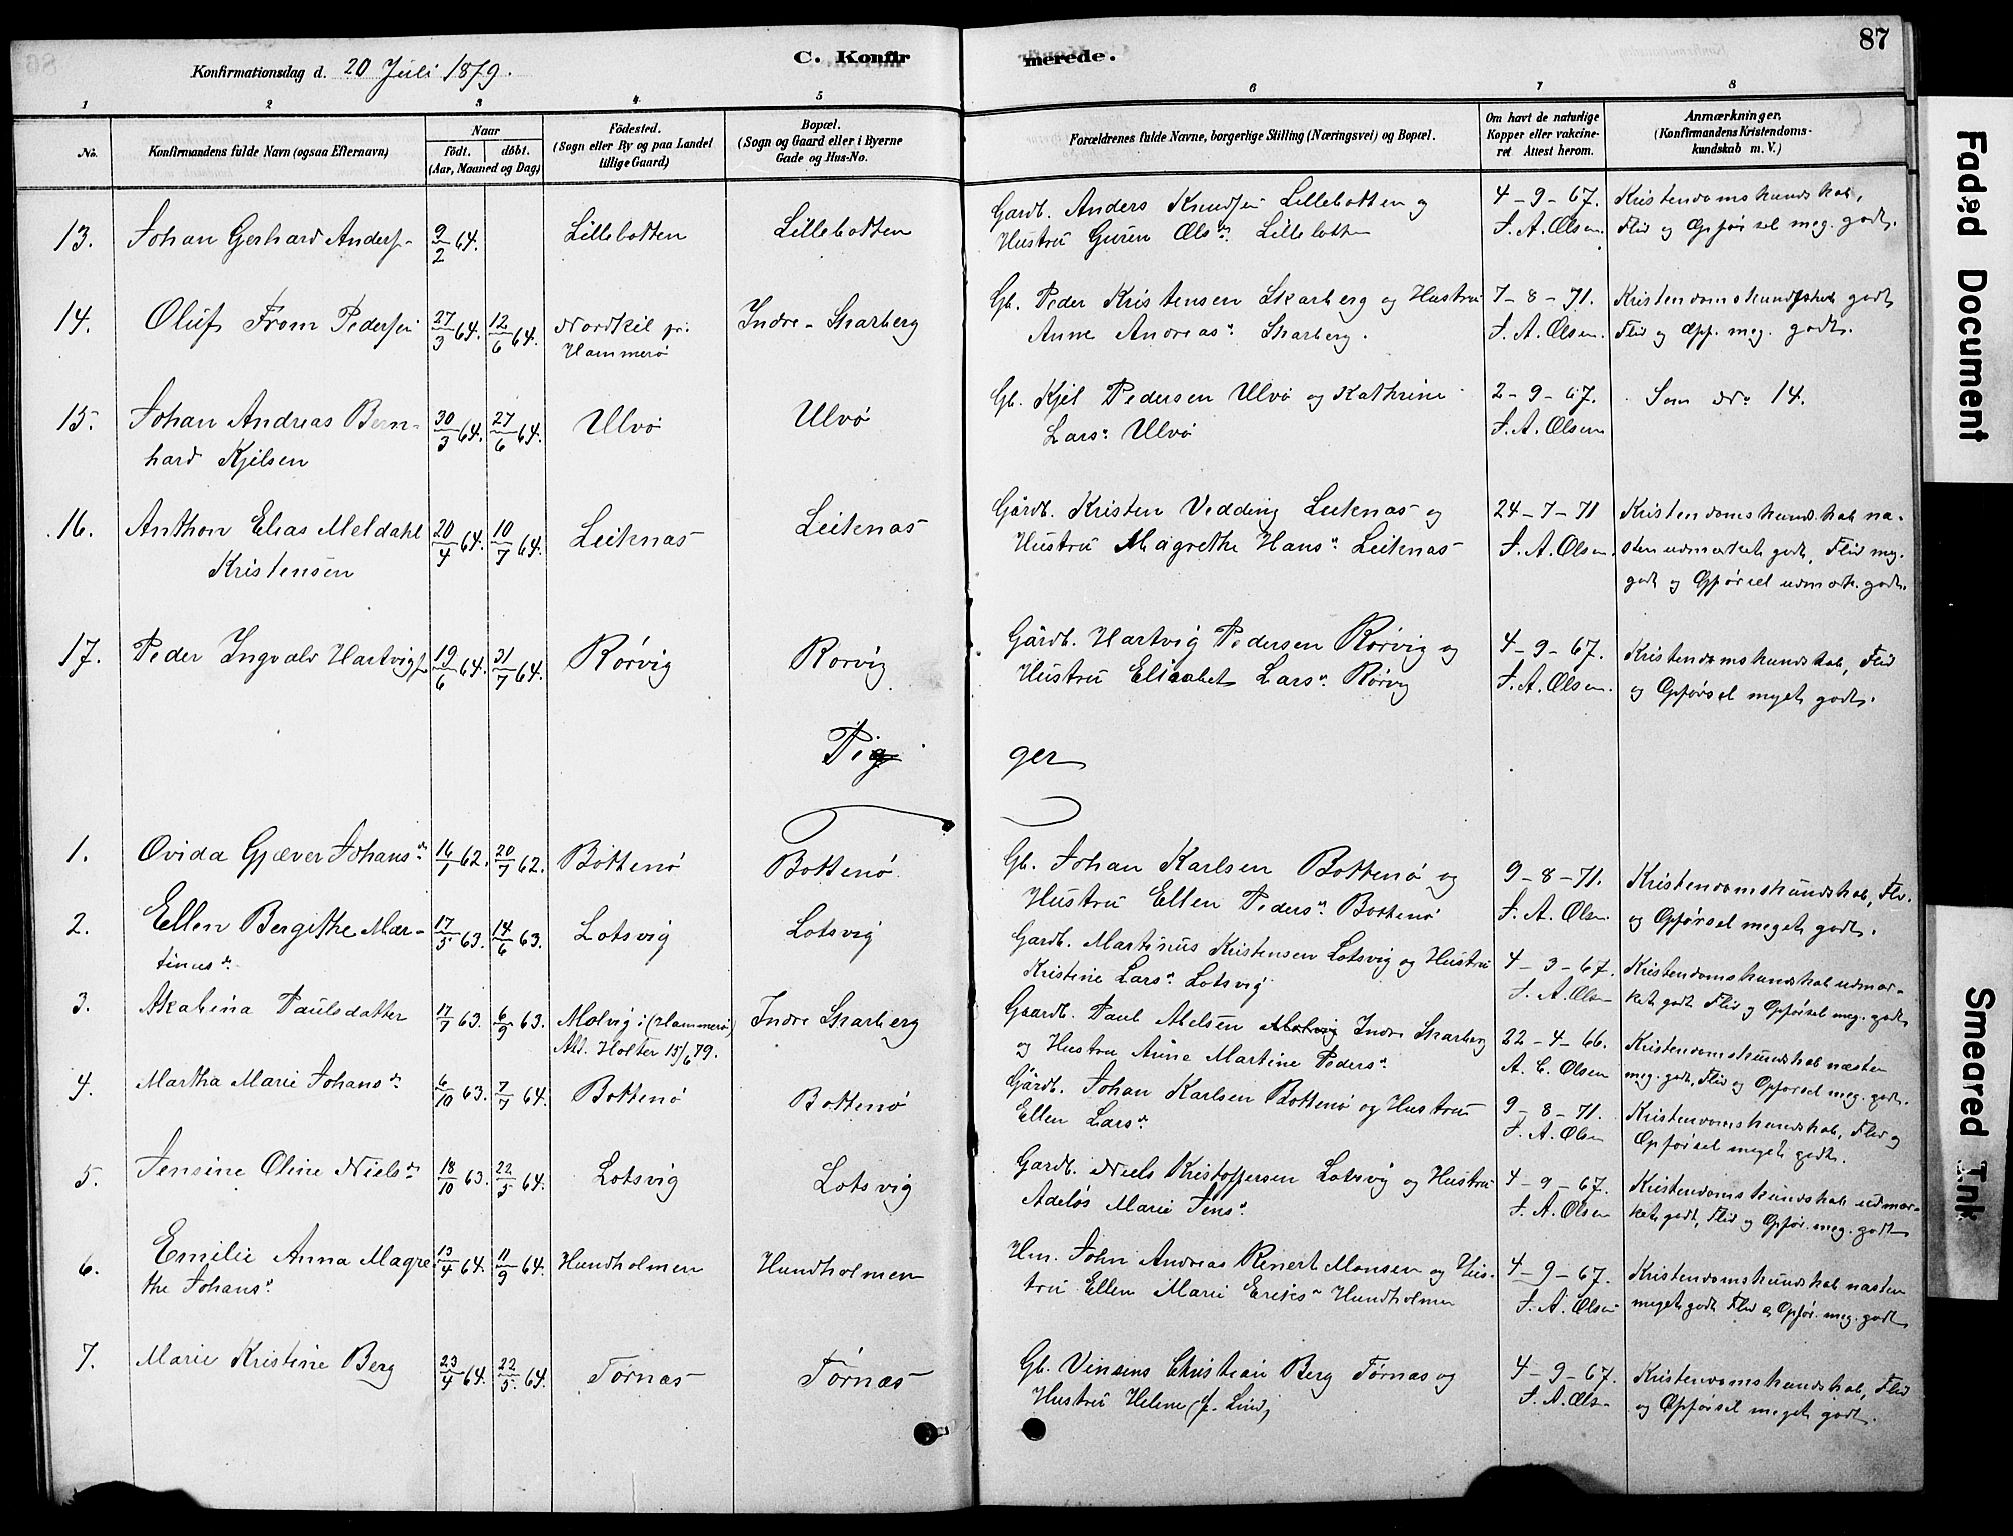 87
Konfirmationsdag d. 20 Juli 1879.
C. Konfirmerede.
1 2 3 4 5 6 7 8
No. Konfirmandens fulde Navn (ogsaa Efternavn) Naar født. døbt. (Aar, Maaned og Dag) Fødested. (Sogn eller By og paa Landet tillige Gaard) Bopæl. (Sogn og Gaard eller i Byerne Gade og Hus-No. Forældrenes fulde Navne, borgerlige Stilling (Næringsvei) og Bopæl. Om havt de naturlige Kopper eller vakcineret Attest herom. Anmærkninger. (Konfirmandens Kristendomskundskab m. V.)
13. Johan Gerhard Anders- 9/2 64. Lillebotten Lillebotten Gardb. Anders Knudsen Lillebotten og 4-9-67. Kristendomskundskab,
Hustru Guren Ols Lillebotten J. A. Olsen. Flid og Opførsel meg. godt.
14. Oluf From Pedersen 27/3 64. 12/6 64. Nordkil pr. Indre-Skarberg Gb. Peder Kristensen Skarberg og Hustru 7-8-71. Kristendomskundskab godt
Hammerø Anne Andreas Skarberg. J. A. Olsen. Flid og Opf. meg. godt.
15. Johan Andreas Bern- 30/3 64. 27/6 64. Ulvø Ulvø Gb. Kjel Pedersen Ulvø og Kathrine 2-9-67. Som No 14.
hard Kjelsen Lars Ulvø J. A. Olsen
16. Anthon Elias Meldahl 20/4 64. 10/7 64. Leiknas Leiknas Gårdb. Kristen Vedding Leiknas og 24-7-71 Kristendomskundskab næ-
Kristensen Hustru Magrethe Hans Leiknas J. A. Olsen. sten udmerket godt, Flid meg.
godt og Opførsel udmærk. godt.
17. Peder Ingvald Hartvigs 19/6 64. 31/7 64. Rørvig Rørvig Gårdb. Hartvig Pedersen Rørvig og 4-9-67. Kristendomskundskab, Flid
Hustru Elisabet Lars Rørvig J. A. Olsen. og Opførsel meget godt.
Piger
1. Ovida Gjæver Johans 16/1 62. 20/7 62. Bottenø Bottenø Gb. Johan Karlsen Bottenø og 9-8-71. Kristendomskundskab, Flid.
Hustru Ellen Peders Bottenø J. A. Olsen og Opførsel meget godt.
2. Ellen Bergithe Mar- 17/5 63. 14/6 63. Lotsvig Lotsvig Gardb. Martinus Kristensen Lotsvig og Hustru 4-3-67. Kristendomskundskab udmær-
tinus Kristine Lars Lotsvig J. A. Olsen ket godt Flid og Opførsel meg. godt
3. Akabina Paulsdatter 17/7 63. 6/9 63. Molvig i (Hammerø) Indre Skarberg Gaardb. Paul Abelsen Indre Skarberg 22-4-66. Kristendomskundskab næsten
Att. Holter 15/6 79. og Hustru Anne Martine Peders A. C. Olsen meg. godt, Flid og Opførsel meg. godt.
4. Martha Marie Johans 6/10 63. 7/7 64. Bottenø Bottenø Gårdb. Johan Karlsen Bottenø og Hustru 9-8-71. Kristendomskundskab, Flid og
Ellen Lars J. A. Olsen Opførsel meget godt.
5. Jensine Oline Niels 18/10 63. 22/5 64. Lotsvig Lotsvig Gardb. Niels Kristoffersen Lotsvig og Hustru 4-9-67. Kristendomskundskab udmær-
Adeløs Marie Jens J. A. Olsen ket godt, Flid og Opfør. meg. godt
6. Emilie Anna Magre- 13/4 64. 11/9 64. Hundholmen Hundholmen Hm. John Andreas Rinert Monsen og Hus- 4-9-67. Kristendomskundskab næsten
the Johans tru Ellen Marie Eriks Hundholmen J. A. Olsen meget godt Flid og Opfør. meg. godt
7. Marie Kristine Berg 23/4 64. 22/5 64. Tørnæs Tørnæs Gb. Vinsens Christian Berg Tørnæs og 4-9-67. Kristendomskundskab, Flid
Hustru Helene f. Lind J. A. Ols- og Opførsel meget godt.
Faded Document
Smeared Ink